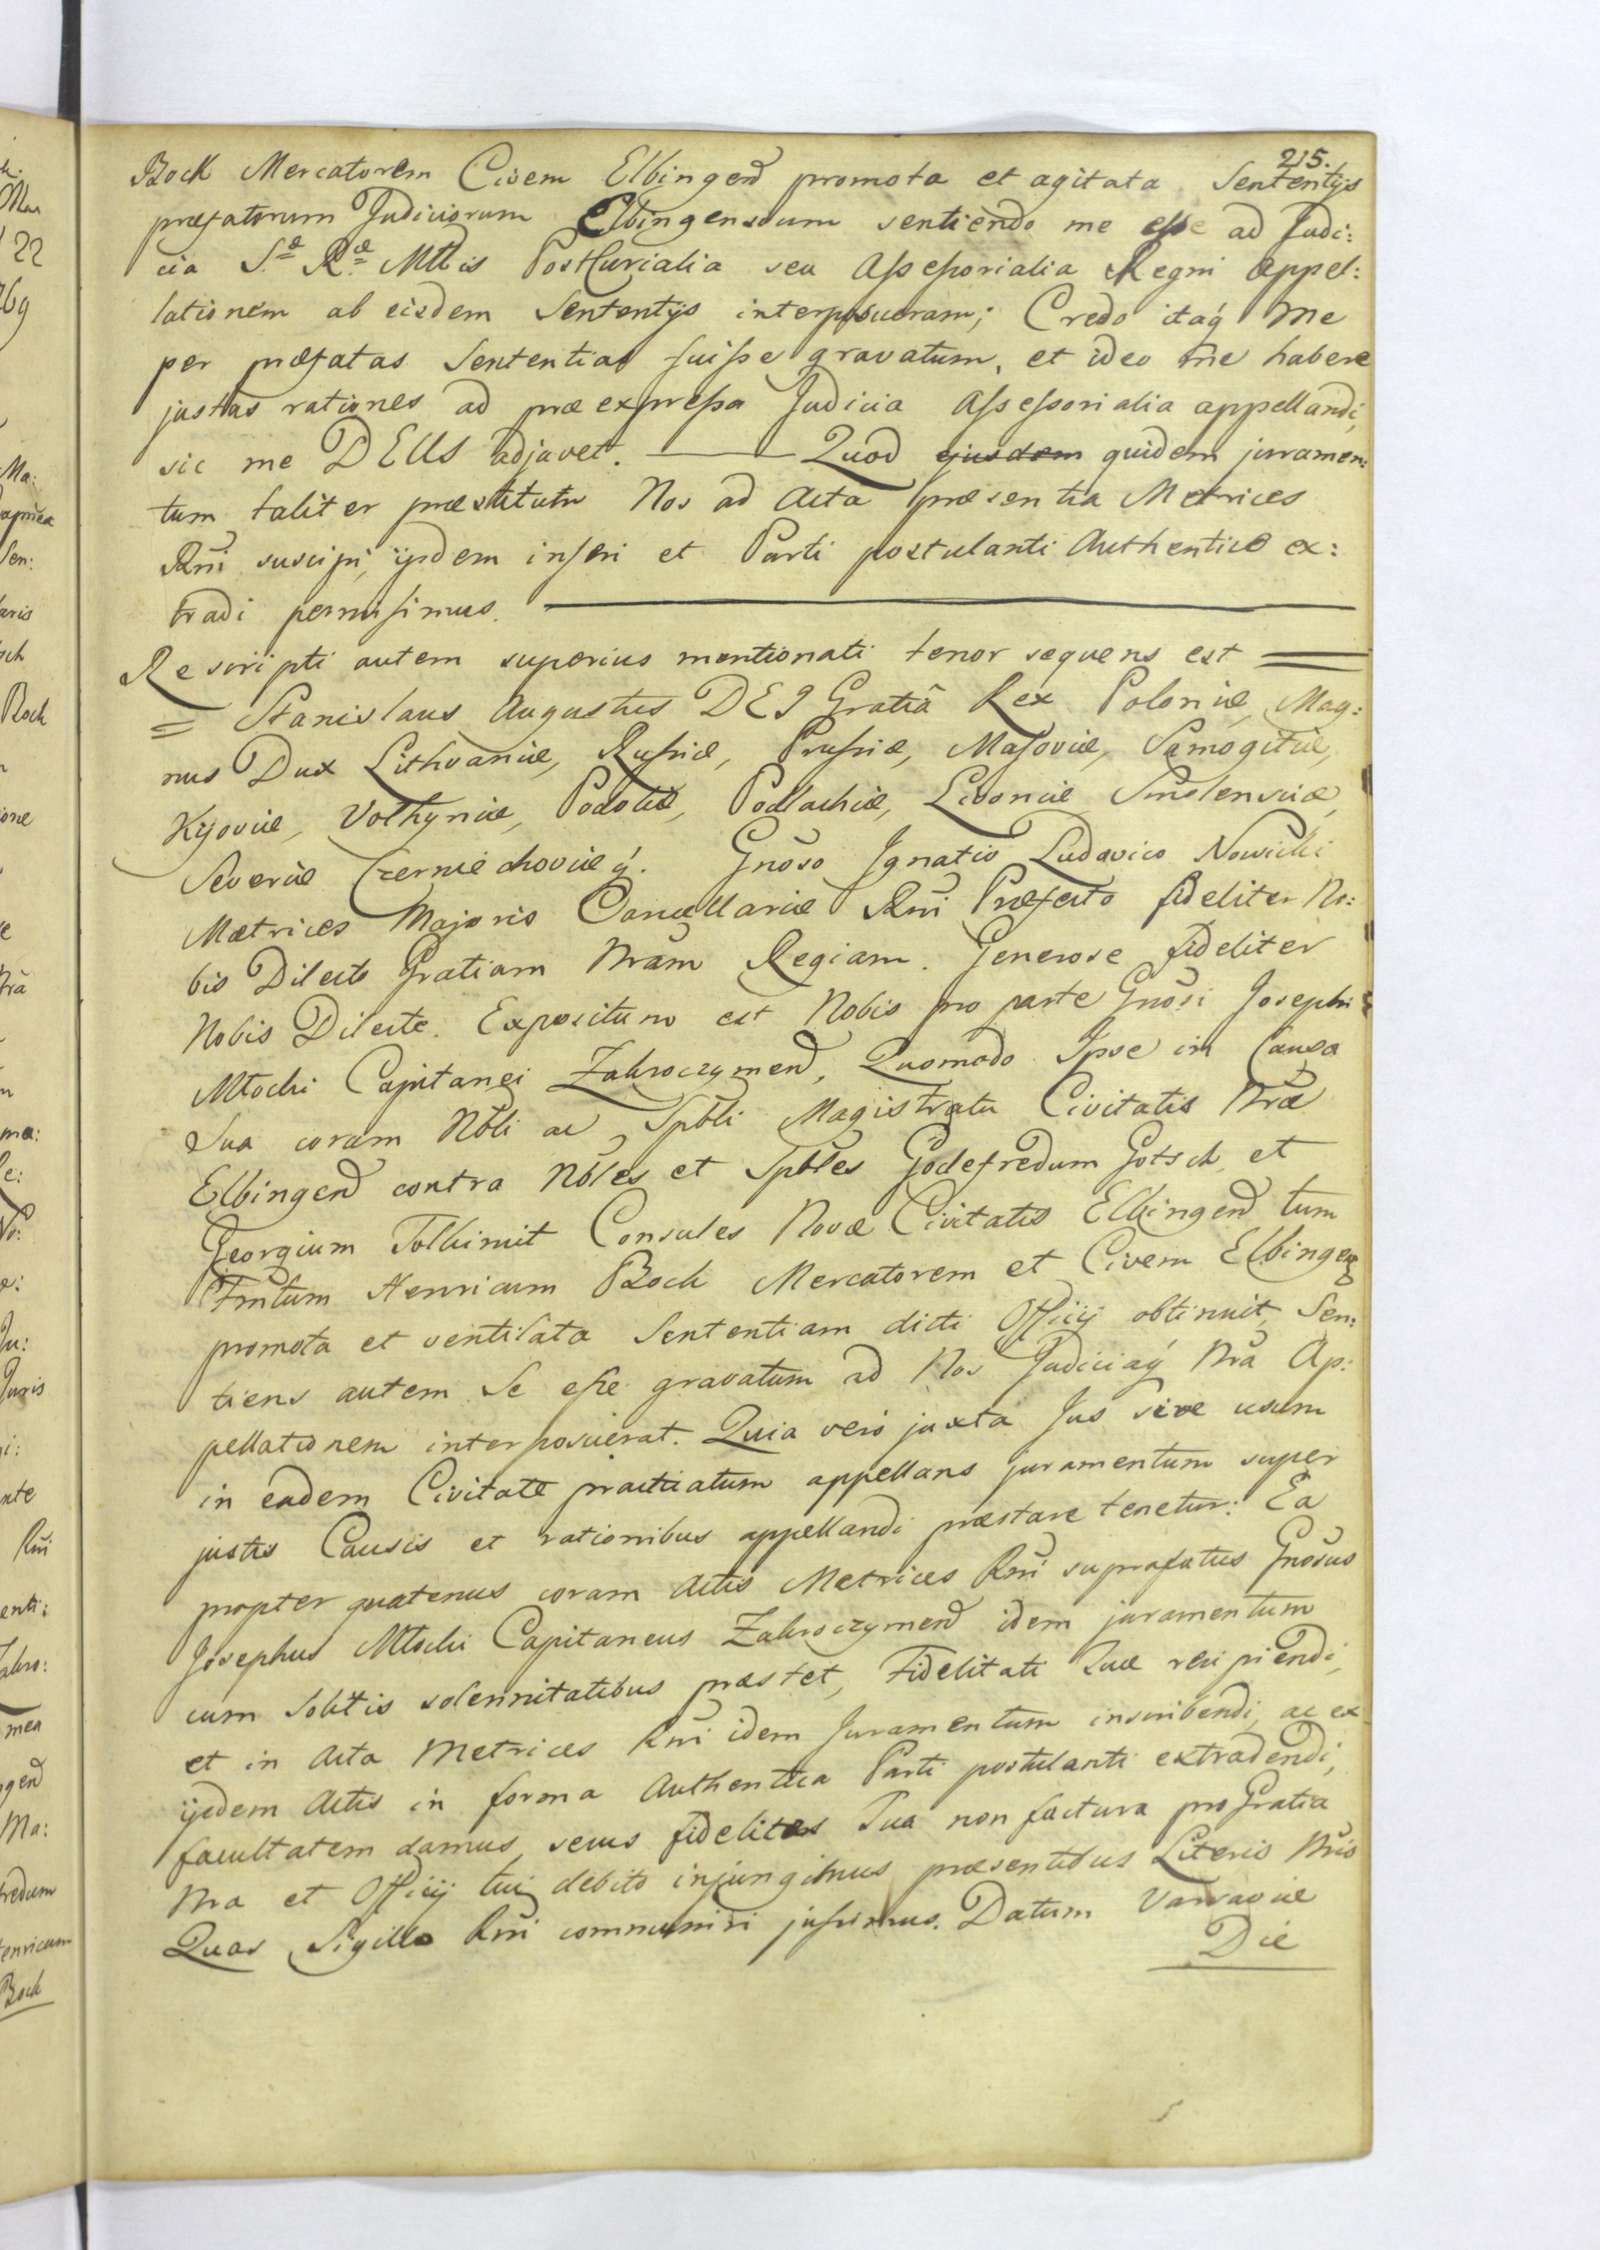 215.
Bock Mercatorem Civem Elbingen promota et agitata Sententijs
præfatorum Judiciorum Elbingensium sentiendo me esse ad Judi:
cia S.æ R.æ Mttis PostCurialia seu Assessorialia Regni appel:
lationem ab eisdem Sententijs interposueram; Credo itaq́ me
per præfatas Sententias fuisse gravatum, et ideo me habere
justas rationes ad præexpressa Judicia Assessorialia appellandi,
sic me DEUS adjuvet. Quod ejusdem quidem juramen:
tum taliter præstitum Nos ad Acta præsentia Metrices
Rni suscipi, ijsdem inseri et Parti postulanti Authentice ex:
tradi permisimus.
Rescripti autem superius mentionati tenor sequens est
= Stanislaus Augustus DEI Gratiâ Rex Poloniæ, Mag:
nus Dux Lithvaniæ, Russiæ, Prussiæ, Masoviæ, Samogitiæ,
Kijoviæ, Volhyniæ, Podoliæ, Podlachiæ, Livoniæ Smolensciæ,
Severiæ Czerniechoviæq́. Gnoso Ignatio Ludovico Nowicki
Metrices Majoris Cancellariæ Rni Præfecto fideliter No:
bis Dilecto Gratiam Nram Regiam. Generose fideliter
Nobis Dilecte. Expositum est Nobis pro parte Gnosi Josephi
Młocki Capitanei Zakroczymen, Quomodo Ipse in Causa
Sua coram Nobli ac Spbli Magistratu Civitatis Nræ
Elbingen contra Nobles et Spbles Godefredum Gotsch et
Georgium Tolkimit Consules Novæ Civitatis Elbingen tum
Fmtum Henricum Bock Mercatorem et Civem Elbingen
promota et ventilata Sententiam dicti Officij obtinuit, Sen:
tiens autem Se esse gravatum ad Nos Judiciaq́ Nra Ap:
pellationem interposuerat. Quia vero juxta Jus sive usum
in eadem Civitate practicatum appellans juramentum super
justis Causis et rationibus appellandi præstare tenetur: Ea
propter quatenus coram Actis Metrices Rni suprafatus Gnosus
Josephus Młocki Capitaneus Zakroczymen idem juramentum
cum solitis solennitatibus præstet, Fidelitati Tuæ recipiendi,
et in Acta Metrices Rni idem Juramentum inscribendi, ac ex
ijsdem Actis in forma Authentica Parti postulanti extradendi,
facultatem damus, secus fidelitas Tua non factura pro Gratia
Nra et Officij tui debito injungimus præsentibus Literis Nris
Quas Sigillo Rni communiri jussimus. Datum Varsaviæ
Die